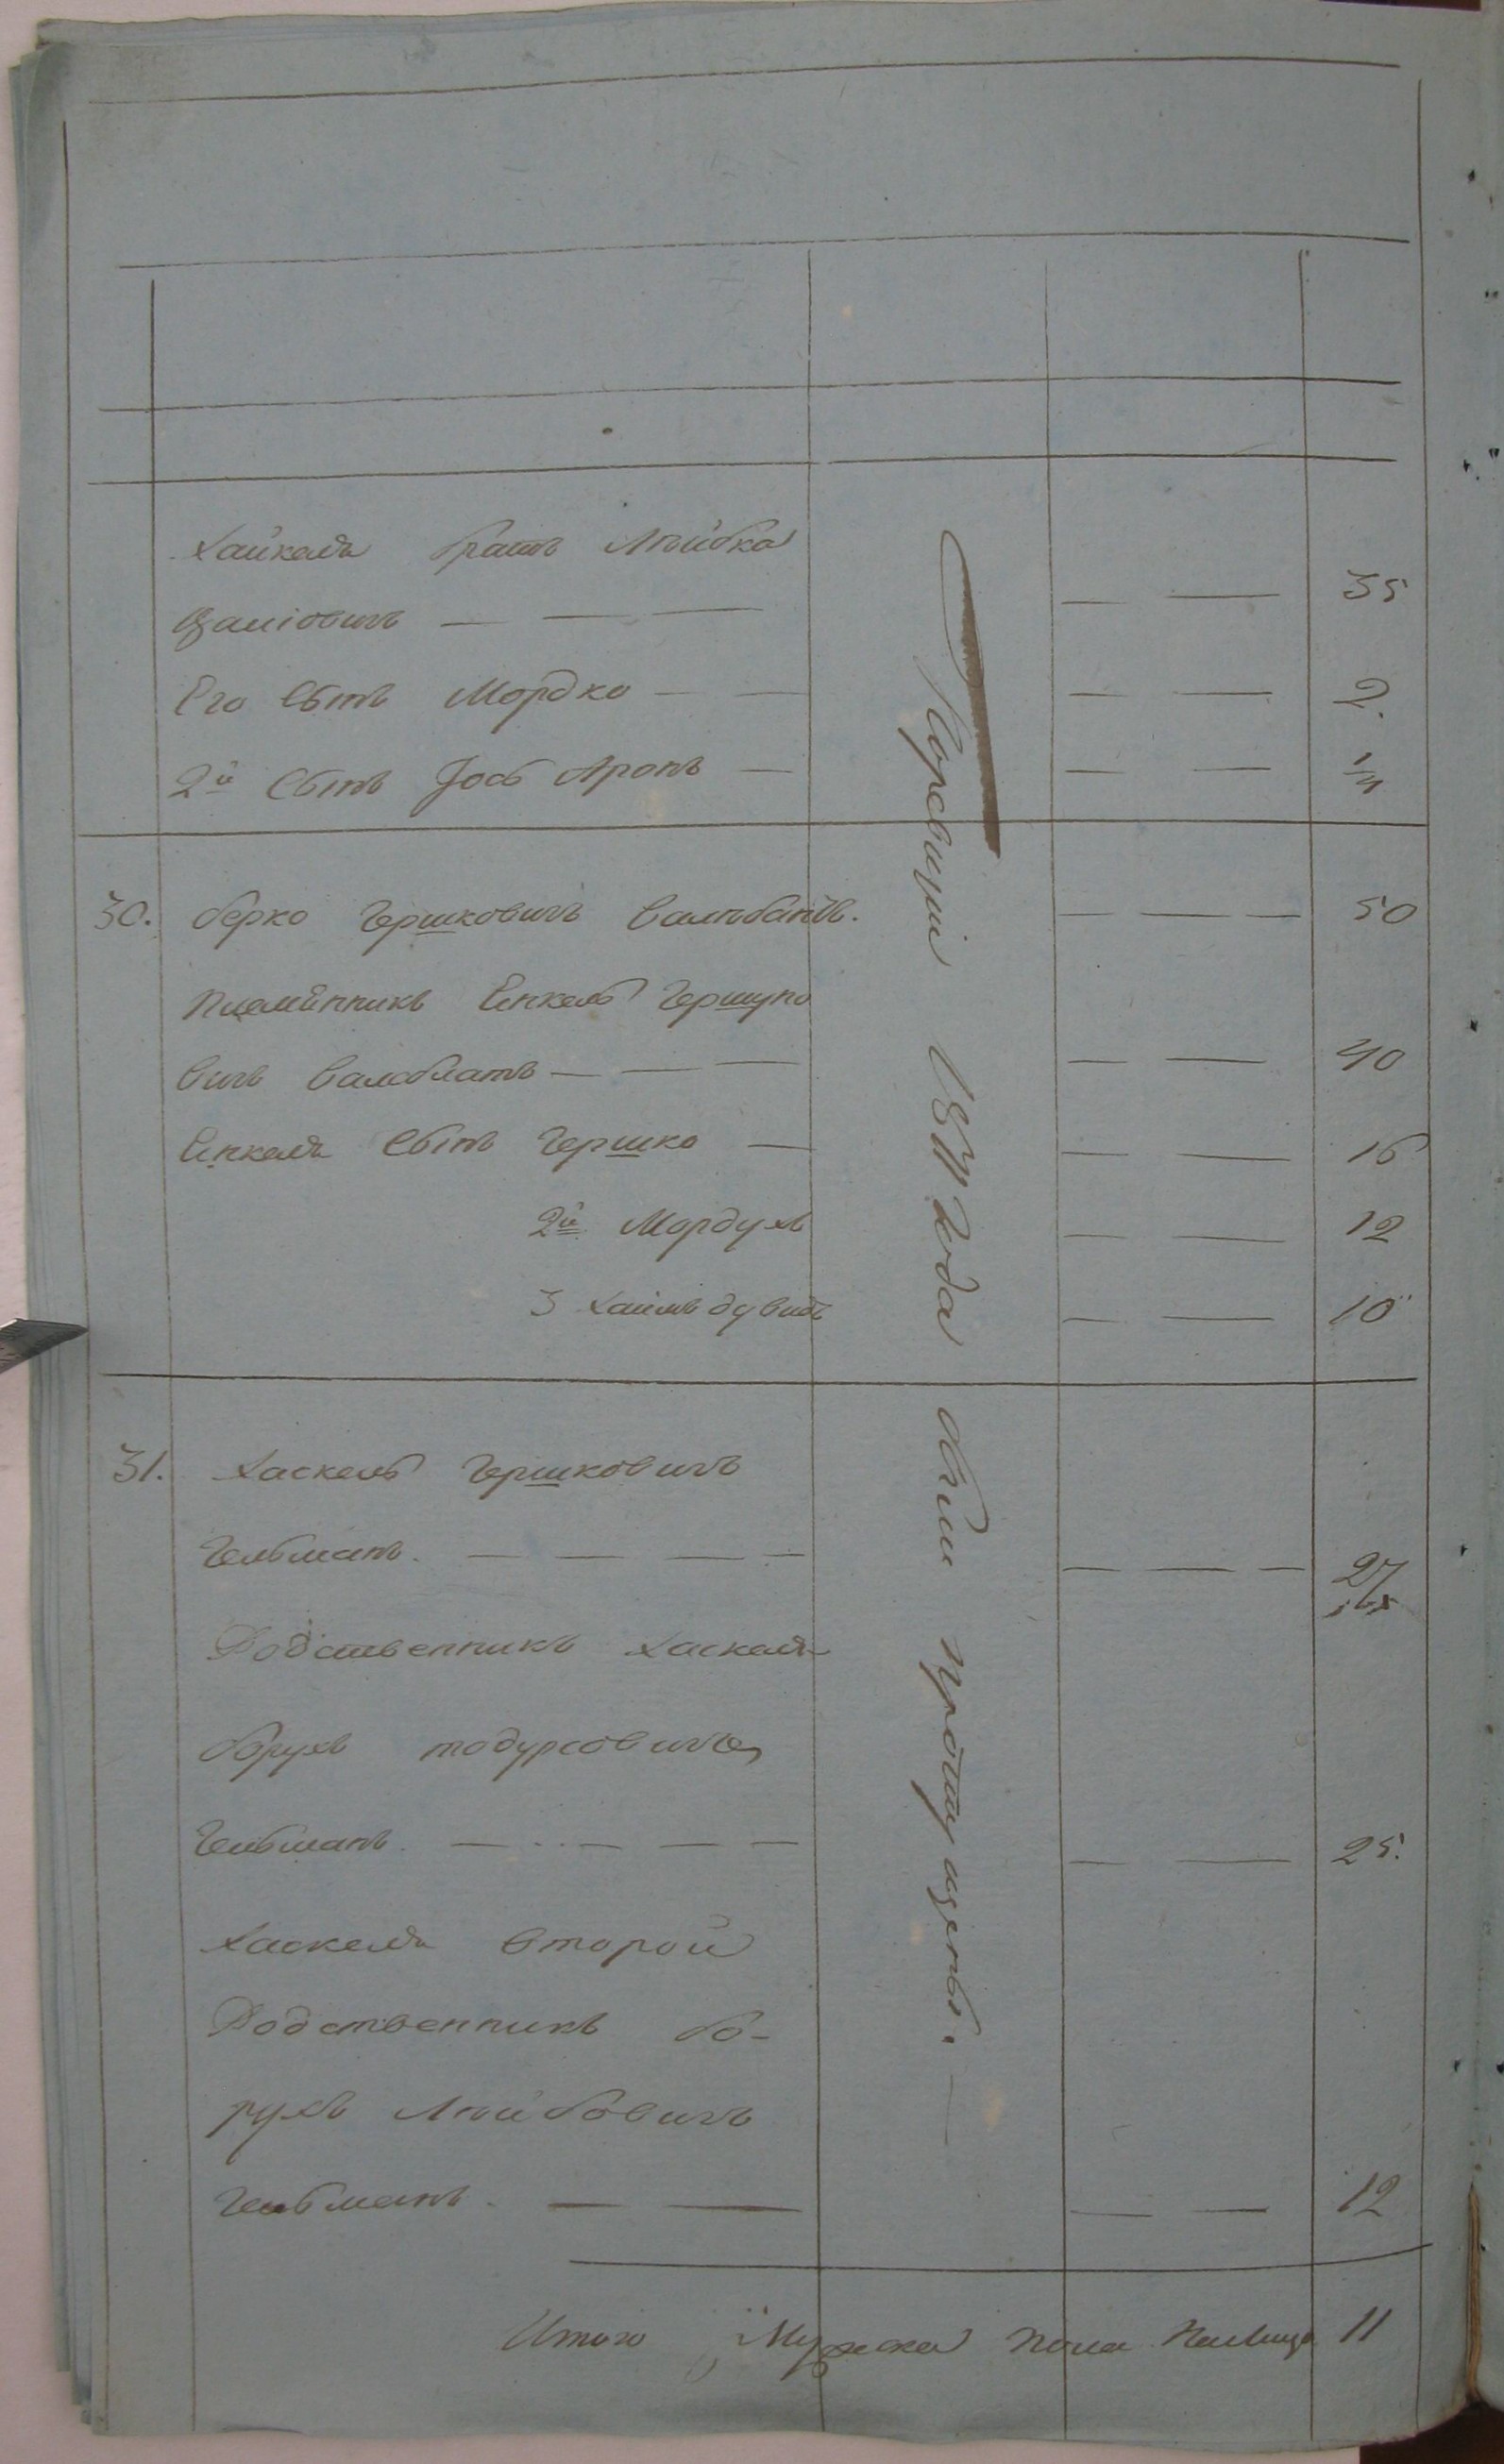 Хайкеля братъ Лейбка
Его сынъ Мордко — — — — 2.
2й сынъ Іось Аронъ — — — 1/4
— — — — — 35
30. Берко Гершковичъ — — — 50
Племянникъ Енкель Гершко
вичъ — — — — — 40
Енкеля сынъ Гершко — — — 16
2й Мордухъ — — 12
3 Хаимъ Дувидъ — — 10
31. Хаскель Гершковичъ
Гельманъ. — — — — — — — 27
Родственникъ Хаскеля
Борухъ Тодурсовичъ
Гельманъ. — — — — — — 25.
Хаскеля второй
Родственникъ Бо-
рухъ Лейбовичъ
Гельманъ. — — — — 12
въ Ревизіи 1811 года были пропущены. —
Итого Мужеска пола налицо 11